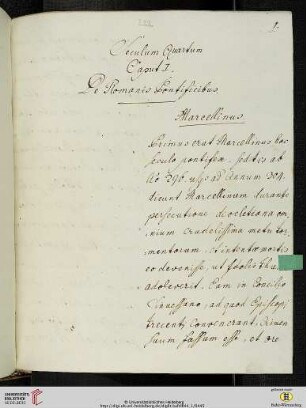 1.
Seculum Quartum
Caput I.
De Romanis Pontificibus
Marcellinus
Primus erat Marcellinus hoc
seculo pontifex. sedit ab
Ao 296. usque ad annum 304.
dicunt Marcellinum durante
persecutione diocletiana om¬
nium crudelissima metu tor¬
mentorum et intento mortis
eo devenisse, ut idolis thus
adoleverit. Eam in Concilio
Sinuessano, ad quod Episcopi
trecenti convenerant, Crimen
suum fassum esse, et
Universitätsbibliothek Heidelberg